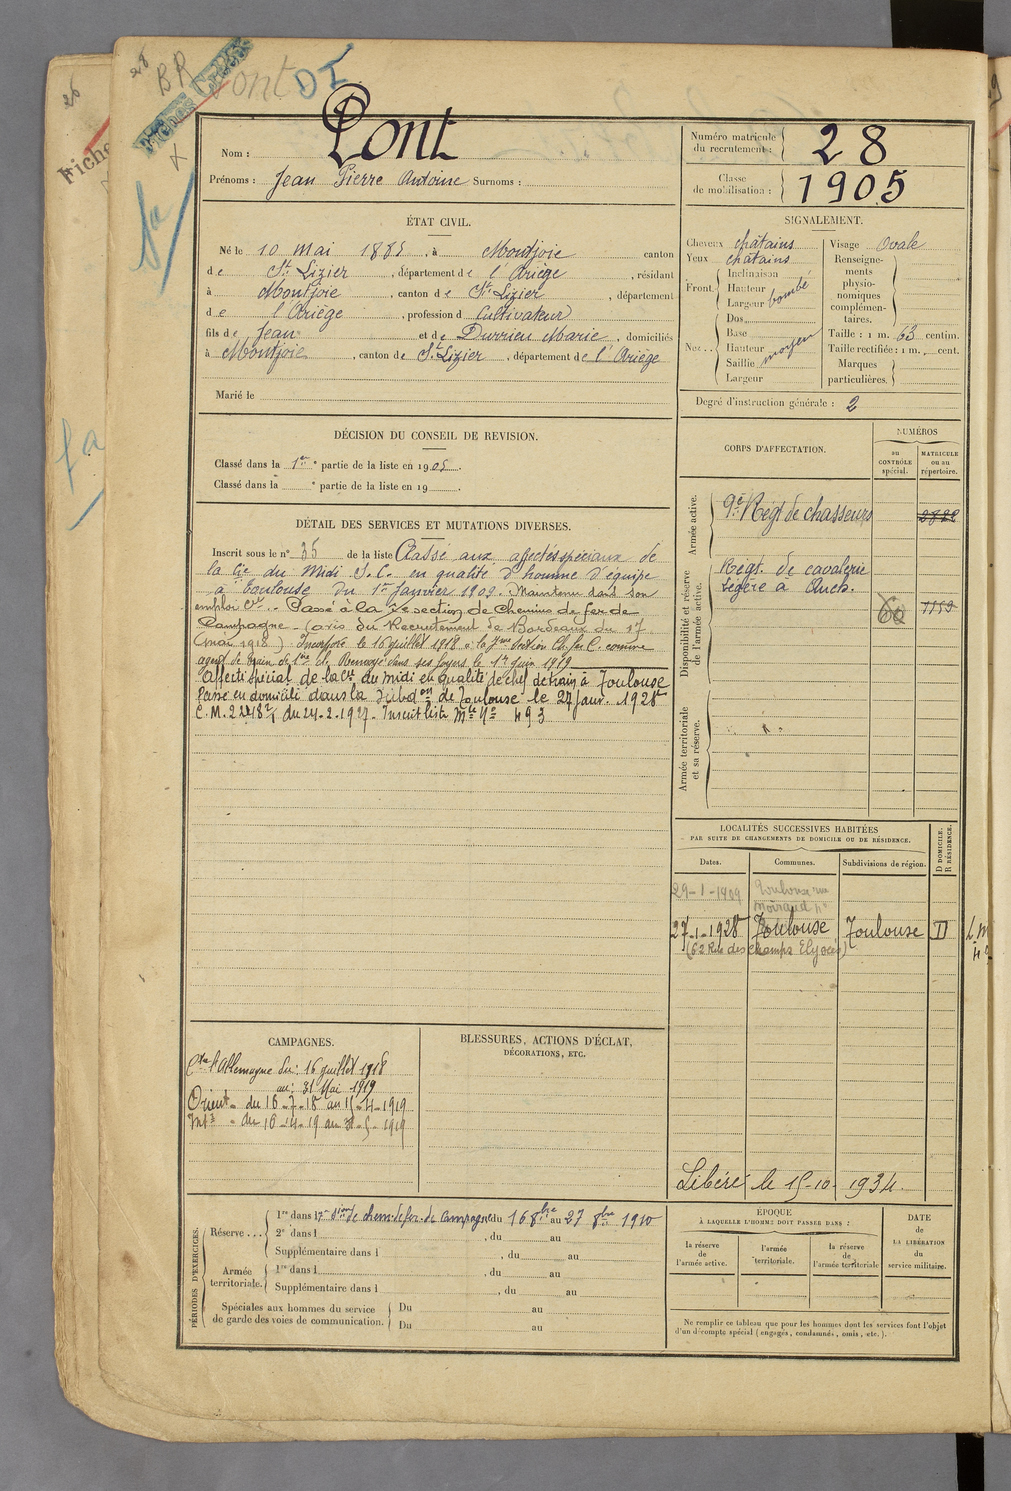 26
Fiche
28
BR
Pont
DI
Fiches
Nom : Pont
Prénoms : Jean Pierre Antoine Surnoms :
Numéro matricule du recrutement : 28
Classe de mobilisation : 1905
ÉTAT CIVIL.
Né le 10 Mai 1885, à Montjoie canton
de St Lizier, département de l'Ariège, résidant
à Montjoie, canton de St Lizier, département
de l'Ariège, profession d Cultivateur
fils de Jean et de Durrieu Marie, domiciliés
à Montjoie, canton de St Lizier, département de l'Ariège
Marié le
SIGNALEMENT.
Cheveux châtains
Yeux châtains
Front.
Inclinaison
Hauteur
Largeur
bombé
Nez..
Dos
Base
Hauteur
Saillie
Largeur
moyen
Visage Ovale
Renseignements physionomiques complémentaires.
Taille : 1 m. 63 centim.
Taille rectifiée : 1 m. , cent.
Marques particulières.
Degré d'instruction générale : 2
DÉCISION DU CONSEIL DE REVISION.
Classé dans la 1re partie de la liste en 1905.
Classé dans la e partie de la liste en 19 .
DÉTAIL DES SERVICES ET MUTATIONS DIVERSES.
Inscrit sous le n° 35 de la liste Classé aux affectés spéciaux de
la Cie du Midi S.C. en qualité d'homme d'équipe
à Toulouse du 1er Janvier 1909. Maintenu dans son
emploi Cr.. Passé à la 7e section de Chemins de fer de
Campagne (avis du Recrutement de Bordeaux du 17
mai 1918). Incorporé le 16 juillet 1918 à la 7me Section Ch. fer C. comme
agent de train de 1re cl. Renvoyé dans ses foyers le 1er Juin 1919
Affecté spécial de la Cie du Midi en qualité de chef de train à Toulouse
Passé en domicile dans la Subdon de Toulouse le 27 Janv. 1928
du 24-2-1927. Inscrit liste Mle No 493
CORPS D'AFFECTATION.
NUMÉROS
au CONTRÔLE spécial.
MATRICULE ou au répertoire.
Armée active.
9e Régt de chasseurs
2822
Disponibilité et réserve de l'armée active.
Régt. de cavalerie
légère à Auch.
60
1153
Armée territoriale et sa réserve.
LOCALITÉS SUCCESSIVES HABITÉES
PAR SUITE DE CHANGEMENTS DE DOMICILE OU DE RÉSIDENCE.
D DOMICILE.
R RÉSIDENCE.
Dates. Communes. Subdivisions de région.
29-1-1909 Toulouse rue
27-1-1928 Toulouse Toulouse D
(62 Rue des Champs Elysées)
Libéré le 15-10-1934.
CAMPAGNES.
Ctre l'Allemagne du: 16 juillet 1918
au: 31 Mai 1919
Orient. du 16-7-18 au 15-4-1919
Intr. du 16-4-19 au 31-5-1919
BLESSURES, ACTIONS D'ÉCLAT,
DÉCORATIONS, ETC.
PÉRIODES D'EXERCICES.
Réserve...
1re dans l 7e Sion de chem. de fer de Campagne du 16 8bre au 27 8bre 1910
2e dans l , du au
Supplémentaire dans l , du au
Armée territoriale.
1re dans l , du au
Supplémentaire dans l , du au
Spéciales aux hommes du service
de garde des voies de communication.
Du au
Du au
ÉPOQUE
À LAQUELLE L'HOMME DOIT PASSER DANS :
la réserve de l'armée active.
l'armée territoriale.
la réserve de l'armée territoriale
DATE de LA LIBÉRATION du service militaire.
Ne remplir ce tableau que pour les hommes dont les services font l'objet
d'un décompte spécial (engagés, condamnés, omis, etc.).